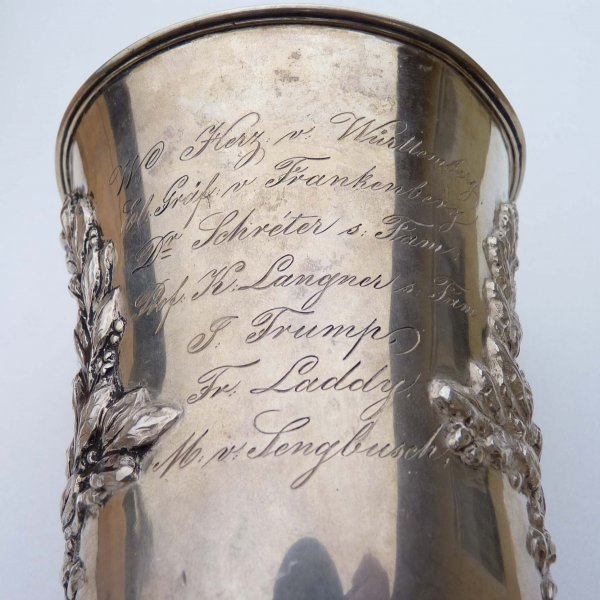 Herz. v. Württemberg
Gräf. v Frankenberg
Dr Schréter s: Fam.
Prof. K. Langner s. Fam
J. Trump.
Fr. Laddy.
M. v. Sengbusch.